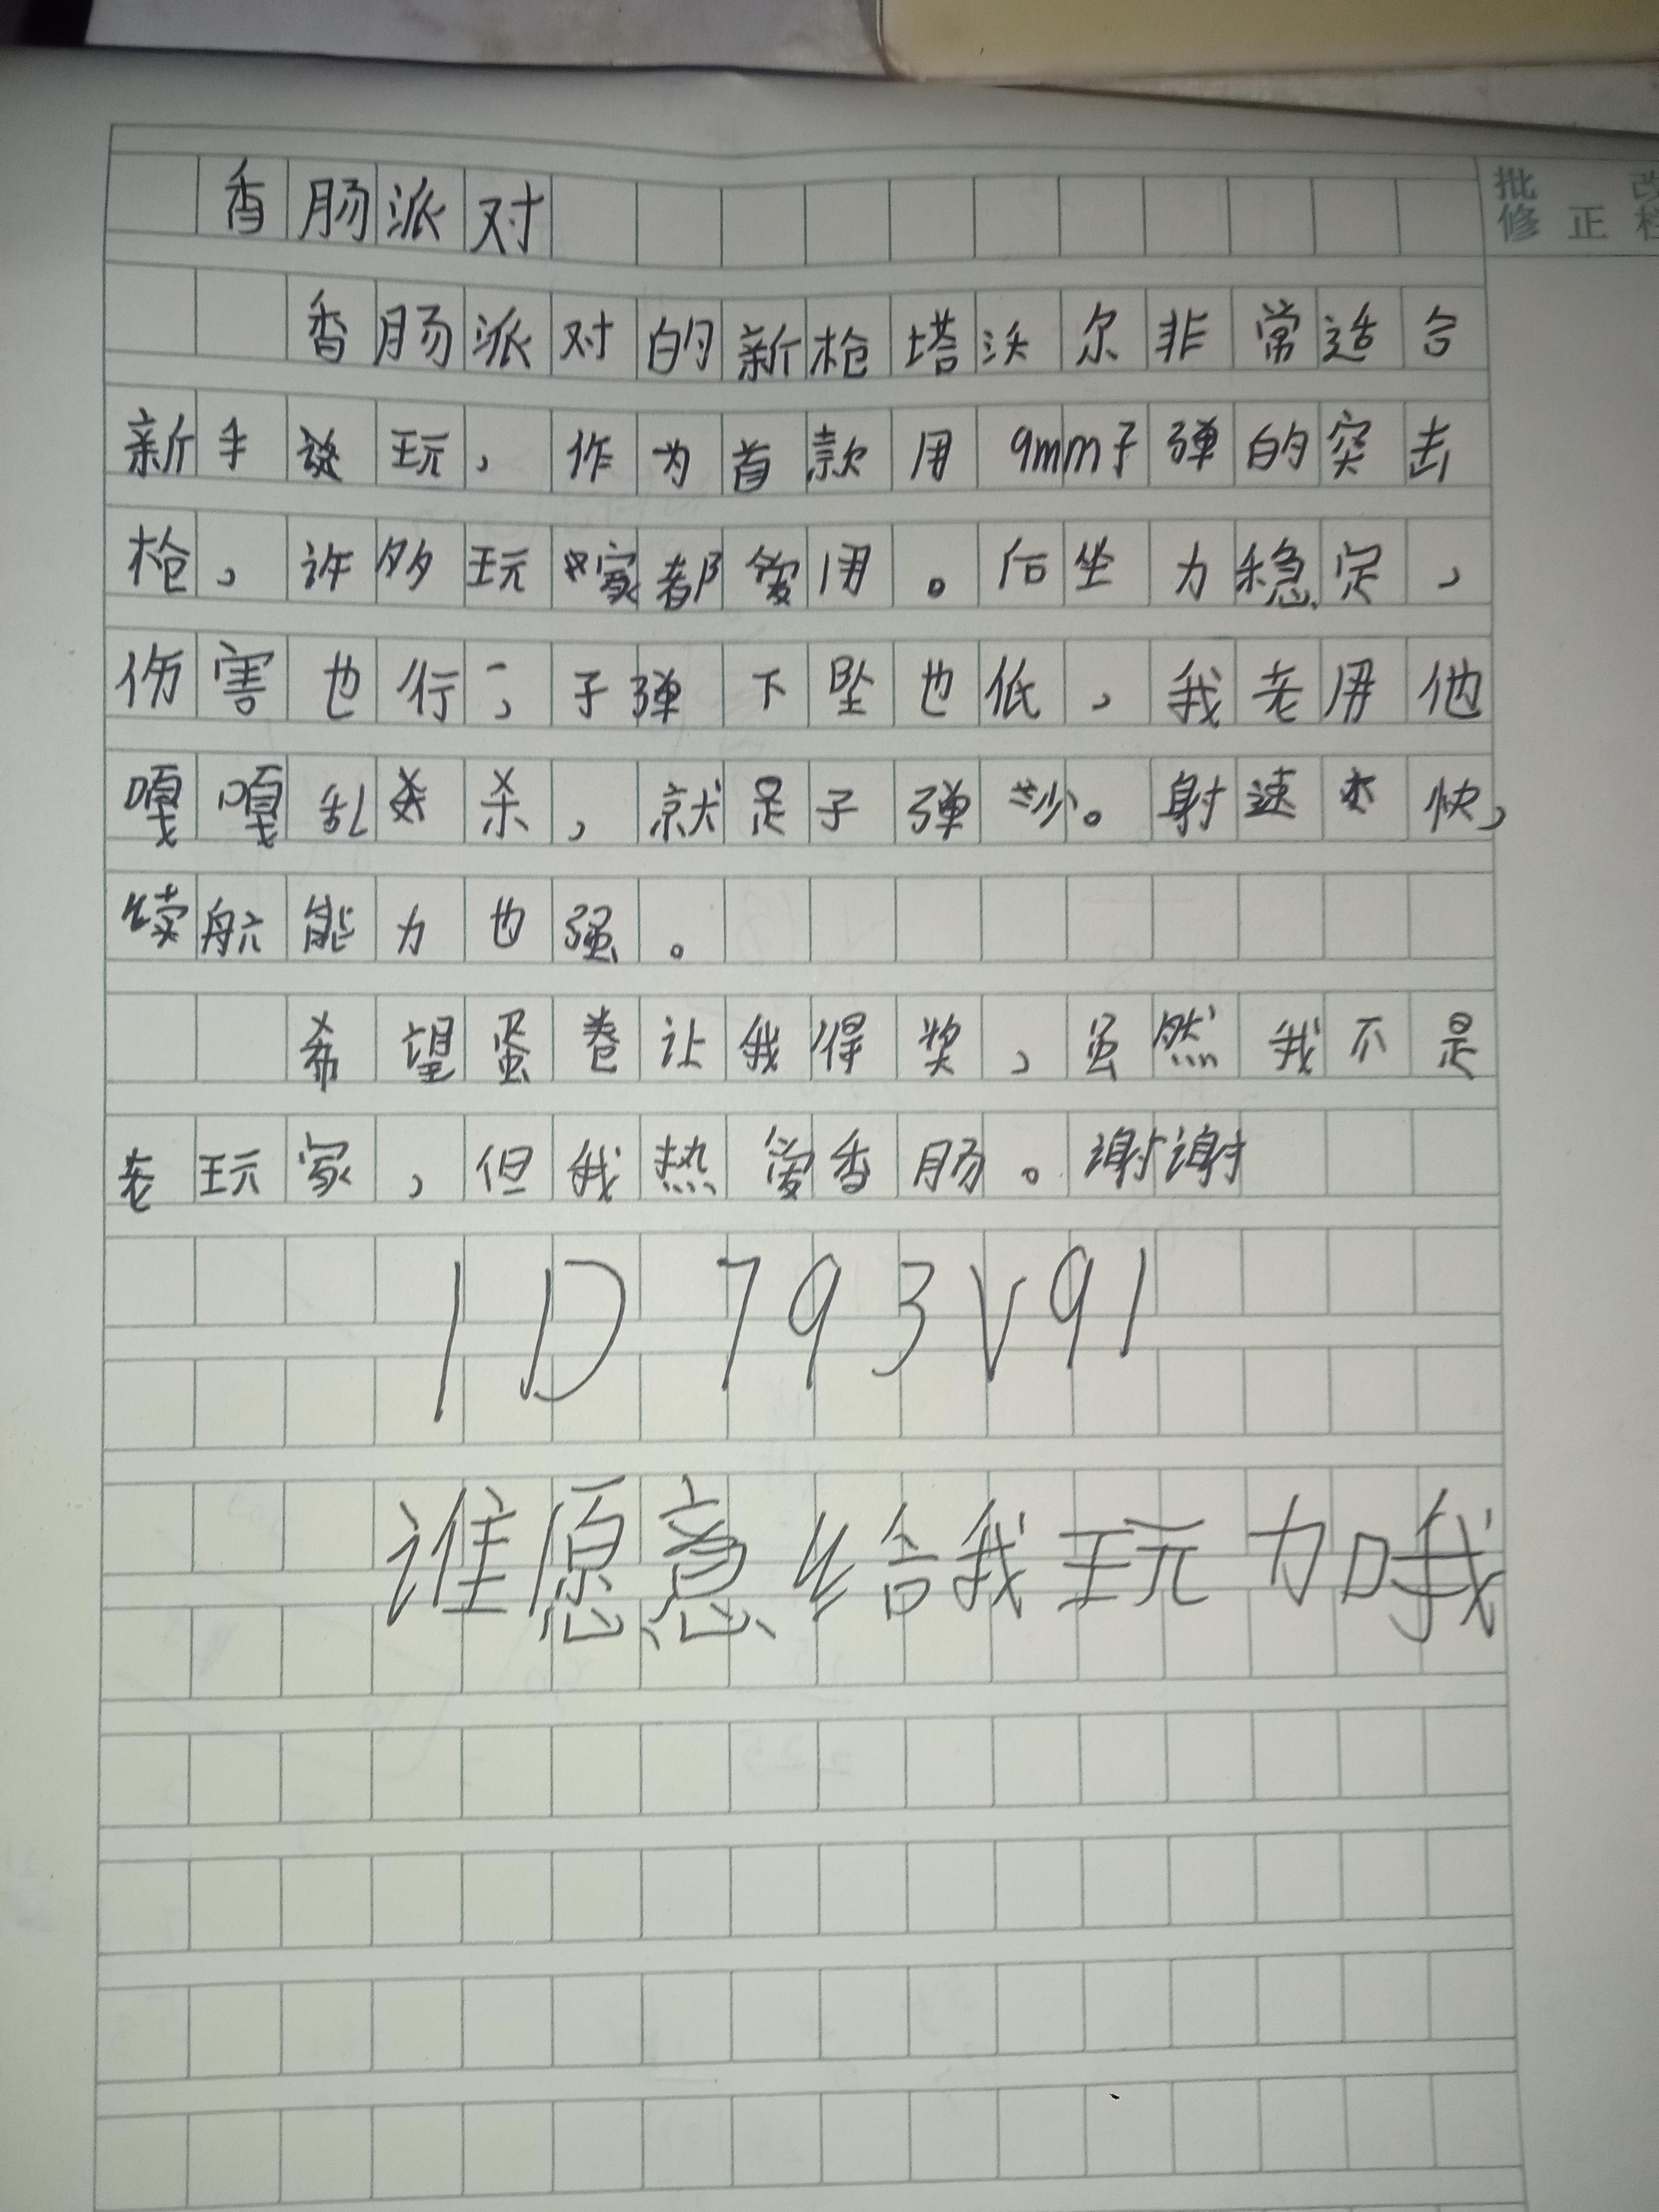 香肠派对
批 改
修 正 栏
香肠派对的新枪塔沃尔非常适合
新手玩，作为首款用9mm子弹的突击
枪，许多玩家都爱用。后坐力稳定，
伤害也行，子弹下坠也低，我老用他
嘎嘎乱杀，就是子弹少。射速快，
续航能力也强。
希望蛋卷让我得奖，虽然我不是
老玩家，但我热爱香肠。谢谢
ID 793V91
谁愿意给我玩加我